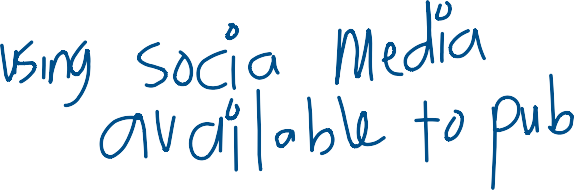 using socia Media
available to pub